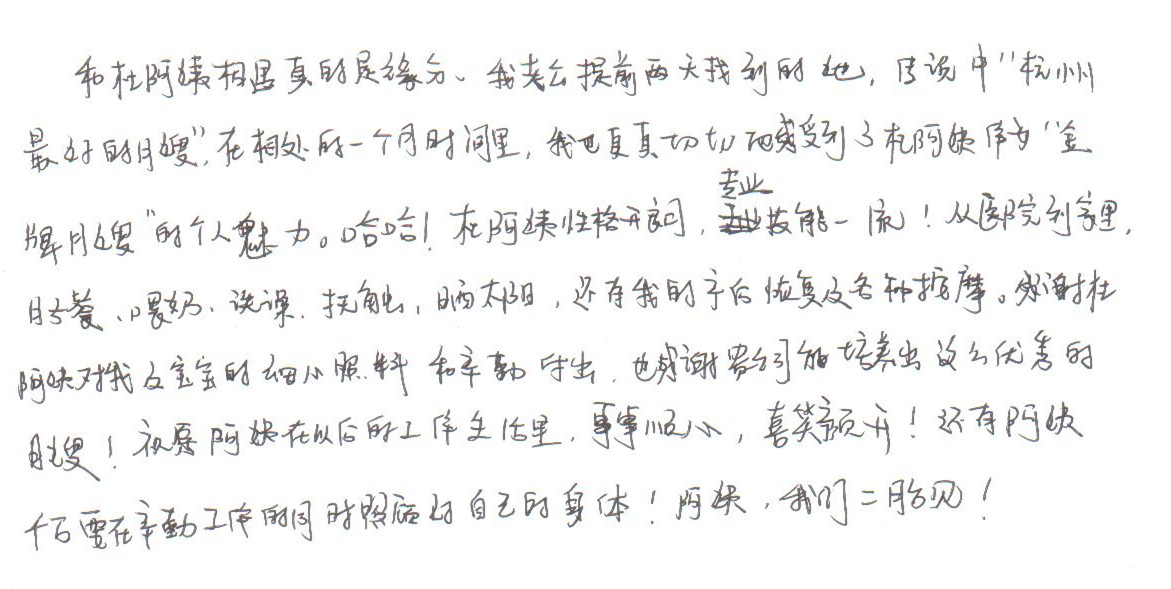 和杜阿姨相遇真的是缘分、我老公提前两天找到的她，传说中"杭州
最好的月嫂"，在相处的一个月时间里，我也真真切切地感受到了杜阿姨作为"金
牌月嫂"的个人魅力。哈哈！杜阿姨性格开朗，专业技能一流！从医院到家里，
月子餐、喂奶、洗澡、抚触，晒太阳，还有我的产后恢复及各种按摩。感谢杜
阿姨对我及宝宝的细心照料和辛勤付出，也感谢贵公司能培养出这么优秀的
月嫂！祝愿阿姨在以后的工作生活里，事事顺心，喜笑颜开！还有阿姨
千万要在辛勤工作的同时照顾好自己的身体！阿姨，我们二胎见！